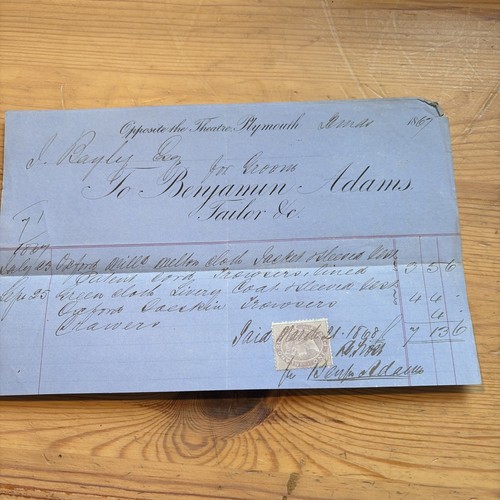 Opposite the Theatre, Plymouth 1867
J. Bayly Esq for Groom
To Benjamin Adams,
Tailor &c.
71
1867
July Oxford Mills Melton Cloth Jacket & Sleeved Vest
Cord Trowsers lined 3 5 6
Sep 25 Green Cloth Livery Coat & Sleeved Vest
Oxford Doeskin Trowsers 4 4 -
Drawers 4 -
Paid March 21 1868 7 13 6
for Benjn Adams